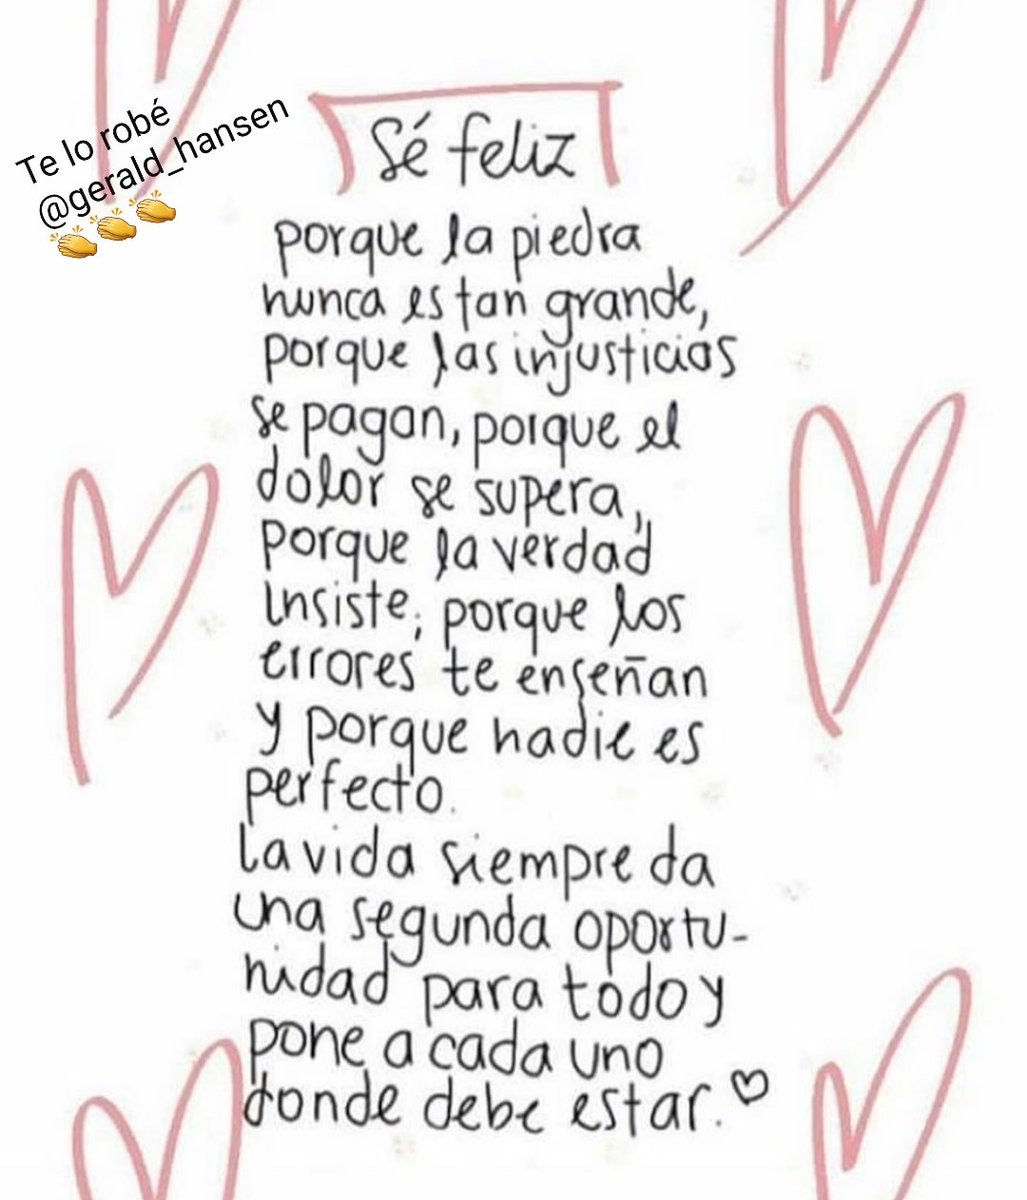 Te lo robé
@gerald_hansen
👏👏👏
Sé feliz
porque la piedra
nunca es tan grande,
porque las injusticias
se pagan, porque el
dolor se supera,
porque la verdad
insiste, porque los
errores te enseñan
y porque nadie es
perfecto.
La vida siempre da
una segunda oportu-
nidad para todo y
pone a cada uno
donde debe estar.♡